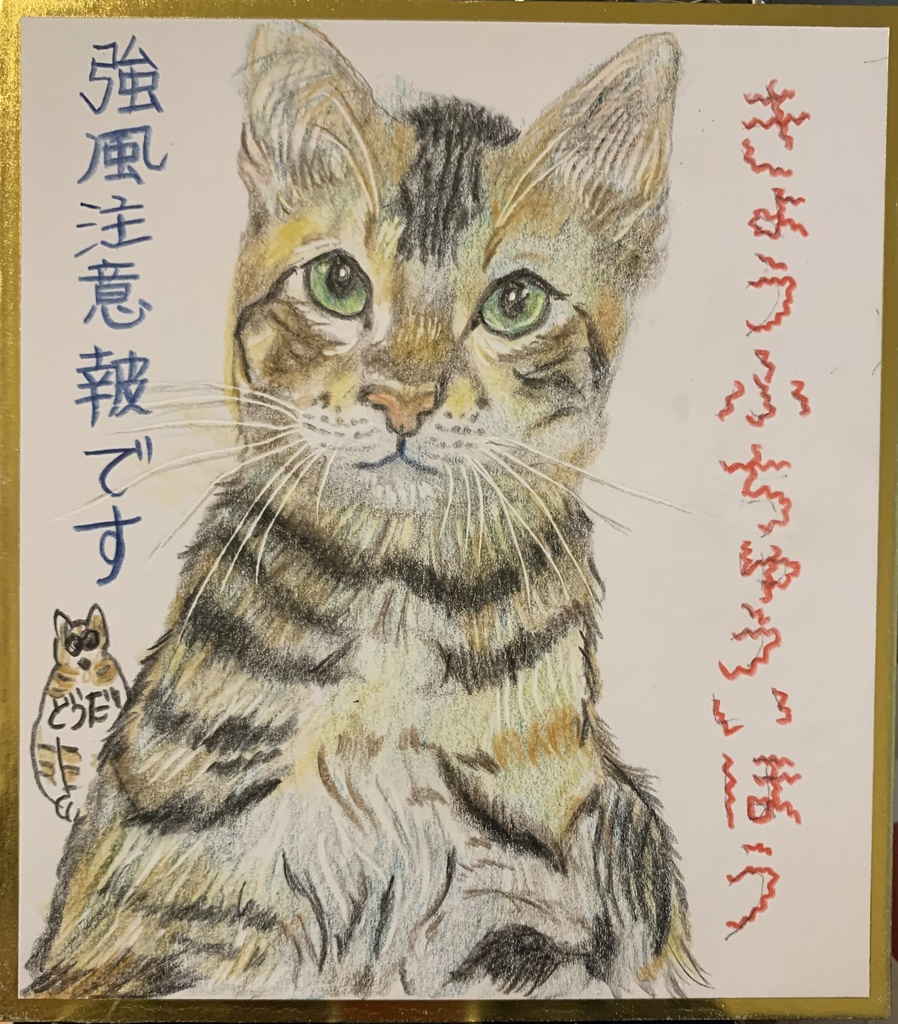 きょうふちゅういほう
強風注意報です
どうだ